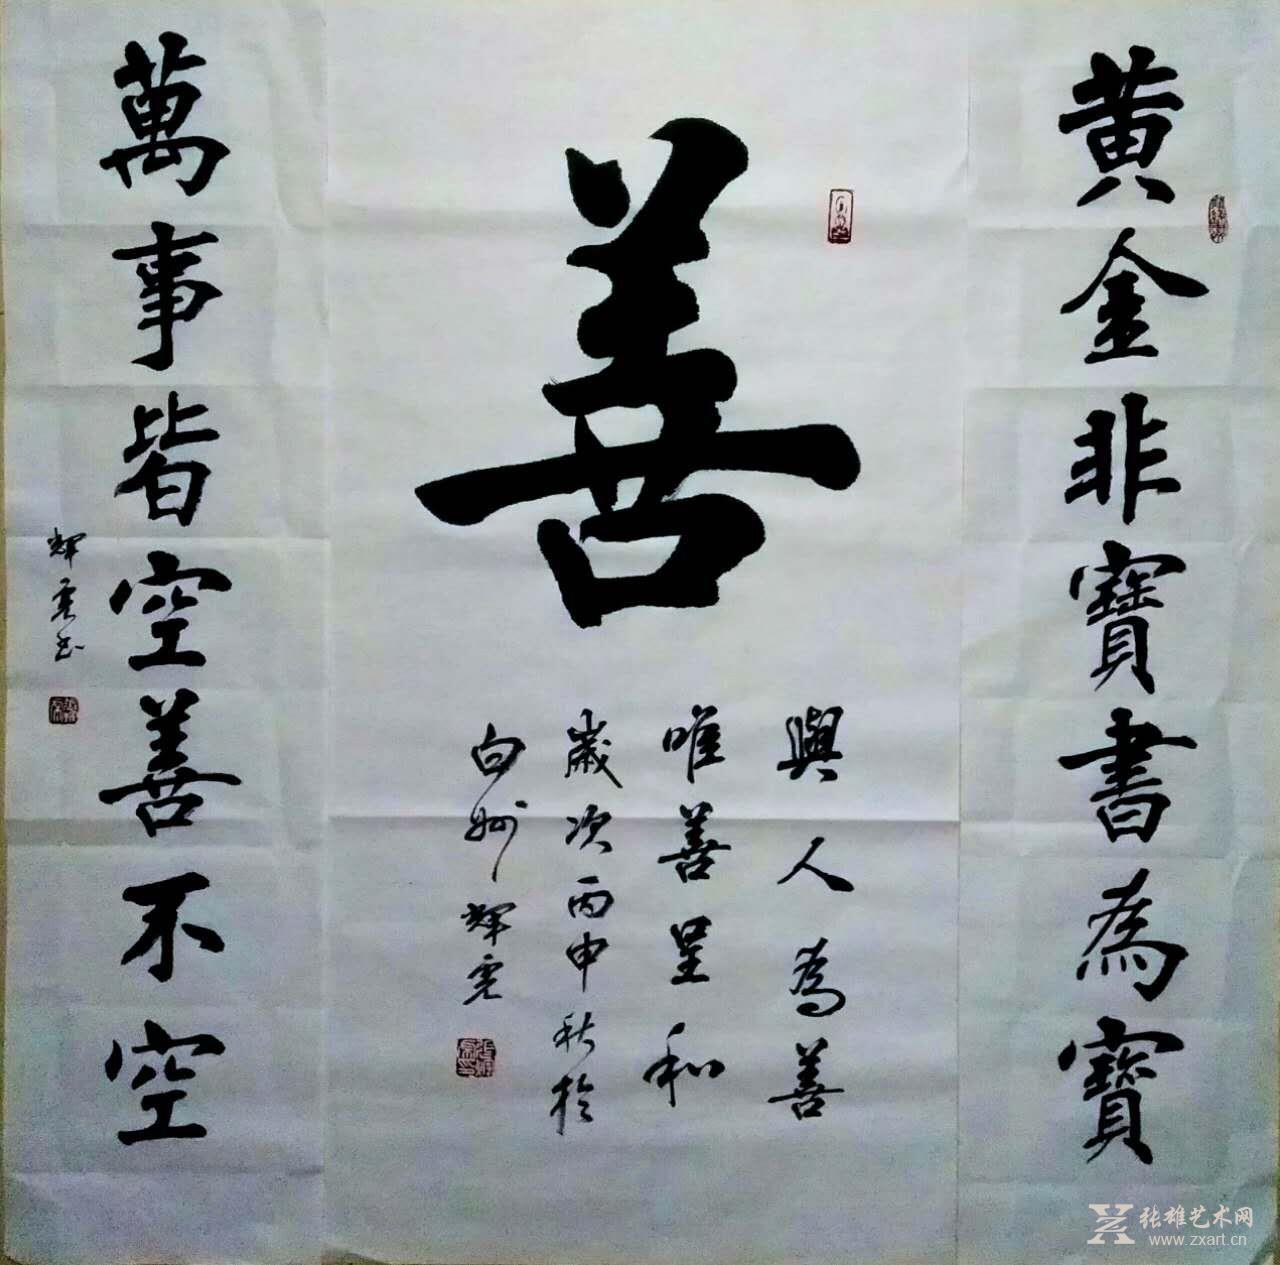 黄金非寶書為寶
善
與人為善
唯善呈和
歲次丙申秋於
白州輝亮
萬事皆空善不空
輝亮书
张雄艺术网
www.zxart.cn